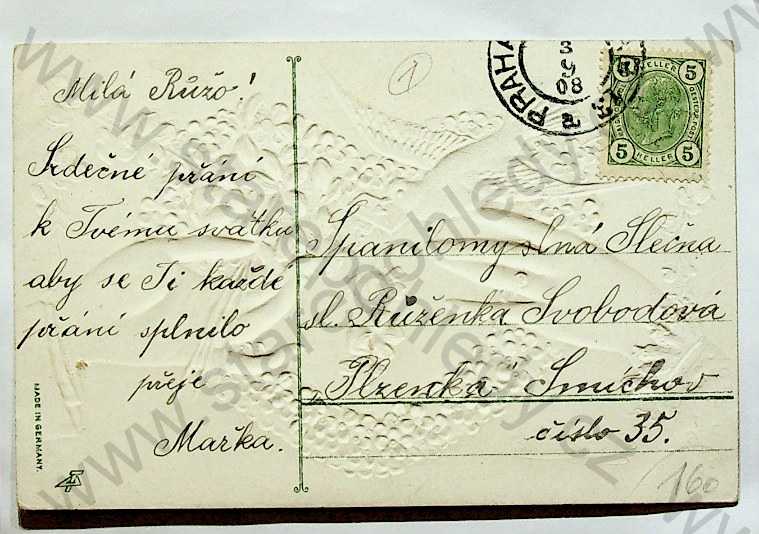 Milá Růžo!
Srdečné přání
k Tvému svátku
aby se Ti každé
přání splnilo
přeje
Mařka.
MADE IN GERMANY.
1
PRAHA
3
9
08
5 HELLER 5
5 HELLER 5
Spanilomyslná Slečna
sl. Růženka Svobodová
"Plzenka" Smíchov
číslo 35.
160
www.staropohledy.cz